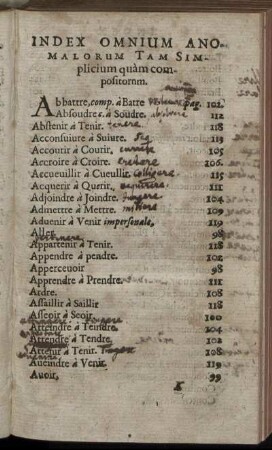 INDEX OMNIUM ANO-
MALORUM TAM SIM-
plicium quàm com-
positorum.
Abbattre, comp. à Batre pag. 101.
Absoudre à Soudre. absolvere 112
Abstenir à Tenir. tenere 118
Acconsuiure à Suiure. 113
Accourir à Courir, currere 105
Accroire à Croire. credere 106.
Accueuillir à Cueullir. colligere 115
Acquerir à Querir, 111
Adjoindre à Joindre. jungere 104
Admettre à Mettre. mittere 109
Aduenir à Venir impersonale, 119
Aller 98
Appartenir à Tenir. 118
Appendre à pendre. 102
Apperceuoir 98
Apprendre à Prendre. 111
Ardre. 108
Assaillir à Saillir 118
Asseoir à Seoir. 100
Atteindre à Teindre. 104
Attendre à Tendre. 102
Attenir à Tenir. 108
Aueindre à Venir. 119
Auoir, 99